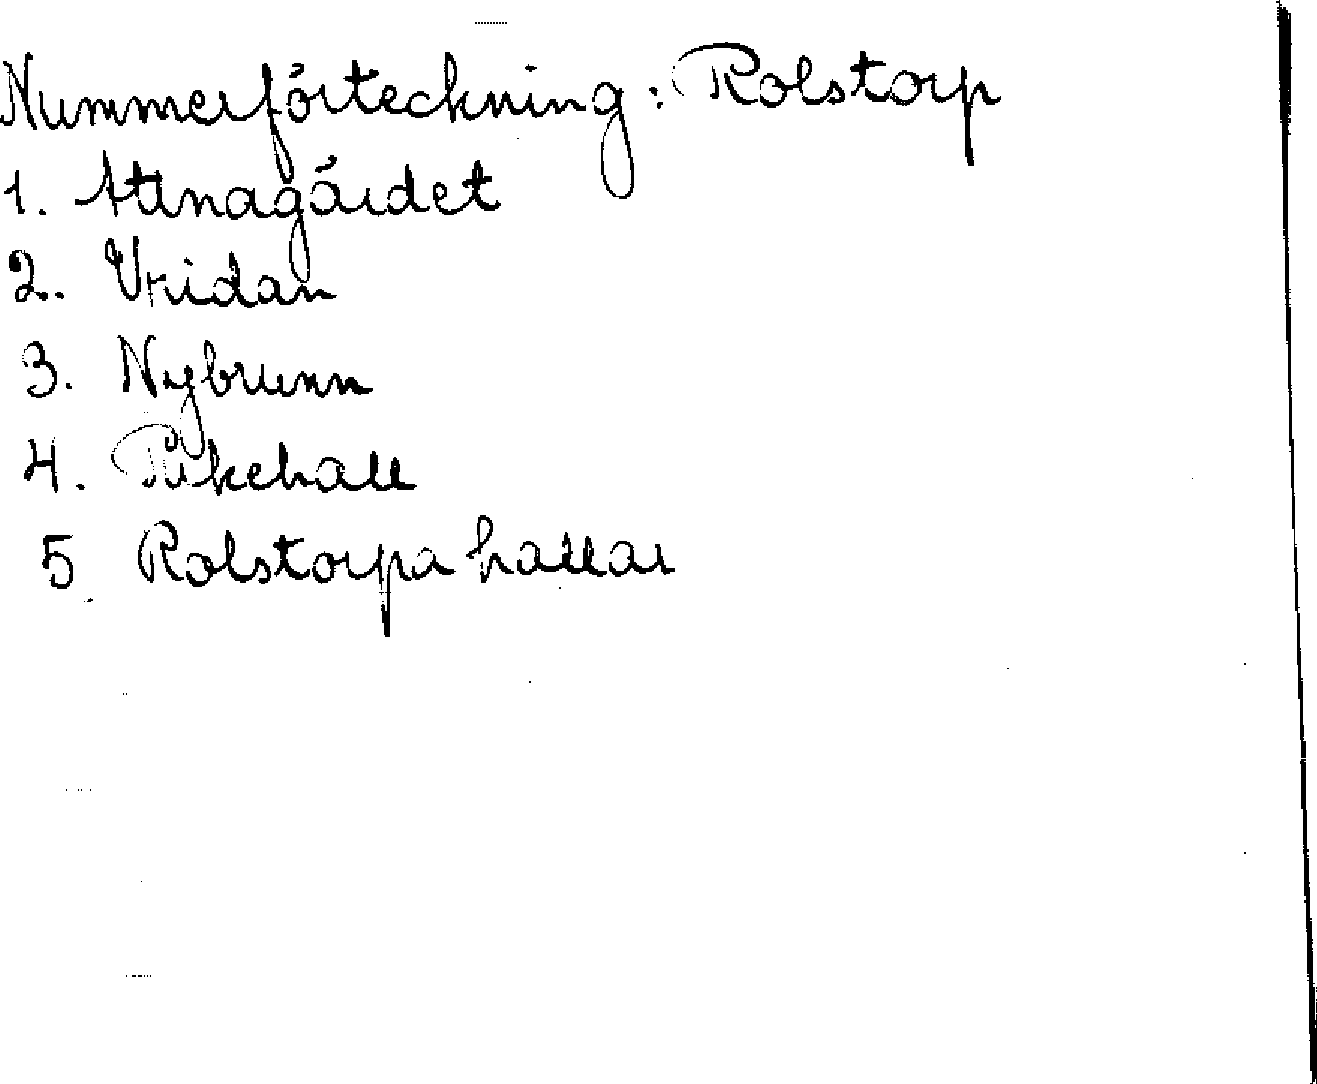 Nummerförteckning: Rolstorp
1.
2. Vridan
3. Nybrunn
4.
5. Rolstorpa hallar